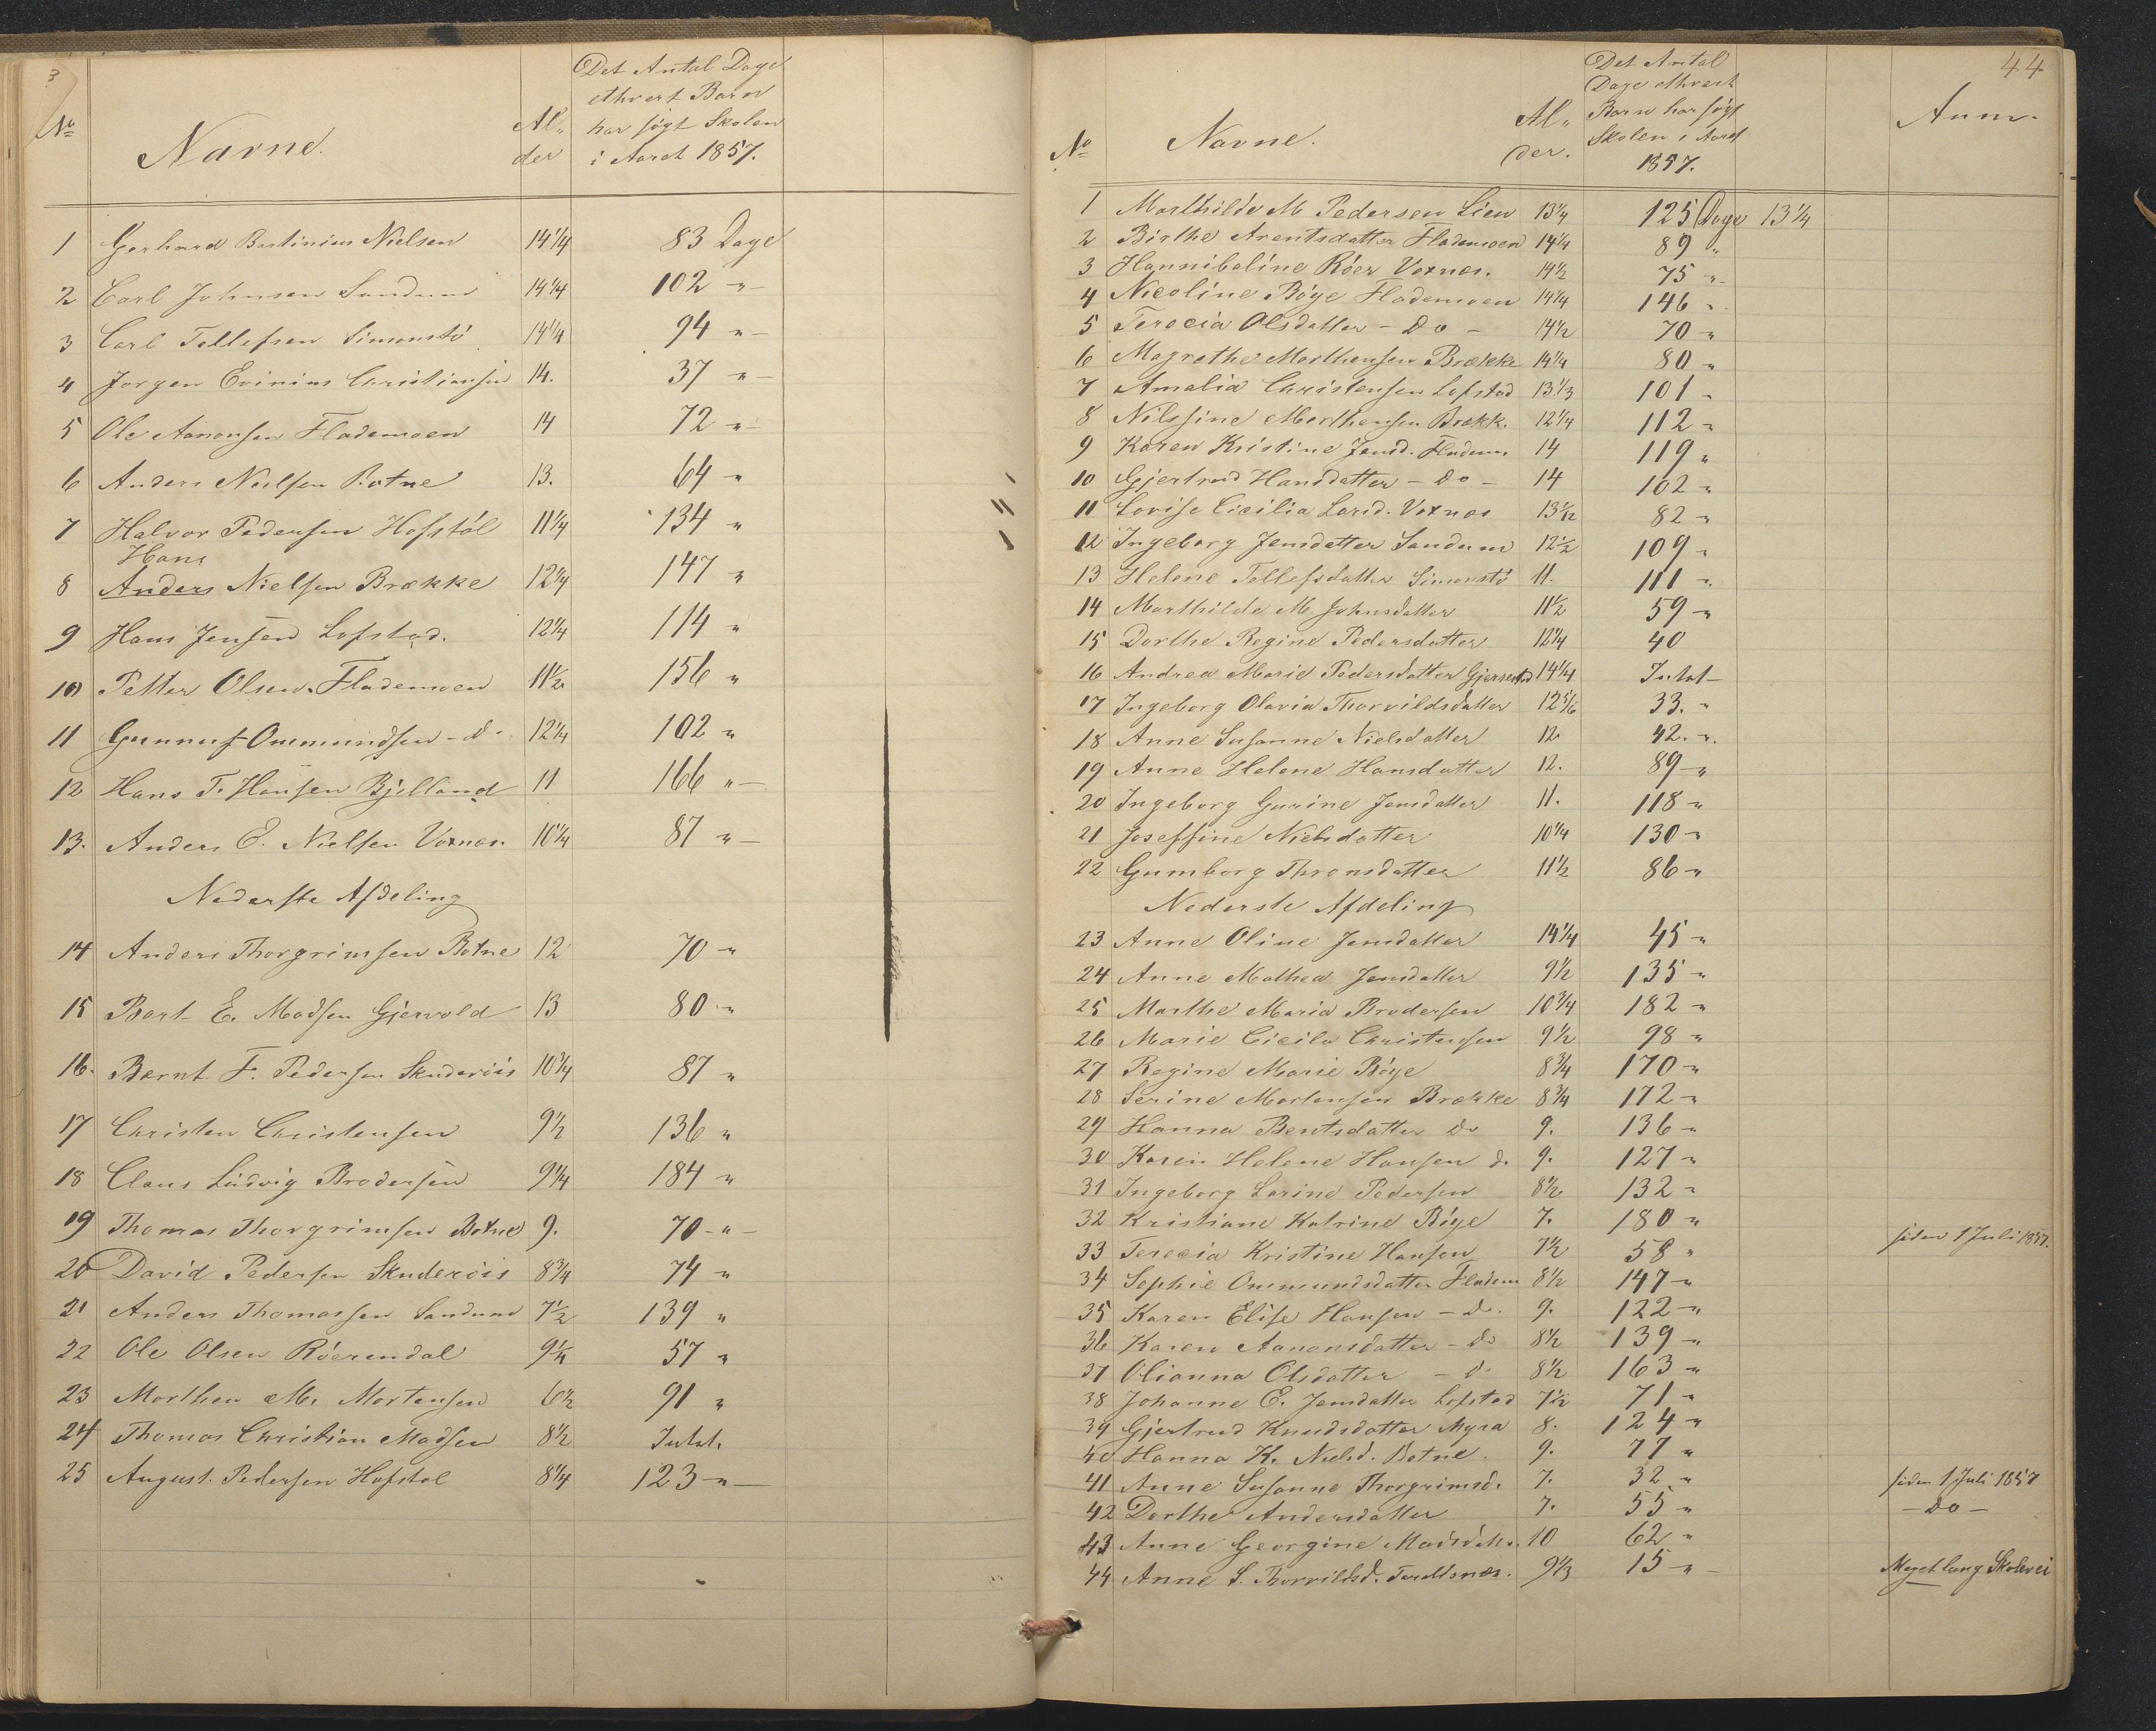 3
No
Navne.
Al„
der
Det Antal Dage
ethvert Barn
har søgt Skolen
i Aaret 1857.
1 Gerhard Bertinius Nielsen 14 1/4 83 Dage
2 Carl Johnsen Sandum 14 1/4 102 "
3 Carl Tellefsen Simonstö 14 1/4 94 "
4 Jorgen Evinius Christiansen 14. 37 "
5 Ole Aanonsen Flademoen 14 72 "
6 Anders Nielsen Botne 13. 64 "
7 Halvor Pedersen Hofstöl 11 1/4 134 "
Hans
8 Anders Nielsen Brække 12 1/4 147 "
9 Hans Jensen Lofstad. 12 1/4 114 "
10 Petter Olsen Flademoen 11 1/2 156 "
11 Gunnuf Ommundsen - d- 12 1/4 102 "
12 Hans T. Hansen Bjelland 11 166 "
13. Anders E. Nielsen Voxnes. 10 1/4 87 "
Nederste Afdeling
14 Anders Thorgrimsen Botne 12 70 "
15 Bert E. Madsen Gjervold 13 80 "
16. Bernt F. Pedersen Skuderöis 10 3/4 87 "
17 Christen Christensen 9 1/2 136 "
18 Claus Ludvig Brodersen 9 1/4 184 "
19 Thomas Thorgrimsen Botne 9. 70 - " -
20 David Pedersen Skuderöis 8 3/4 74 "
21 Anders Thomassen Sandum 7 1/2 139 "
22 Ole Olsen Röerendal 9 1/4 57 "
23 Morthen M. Mortensen 6 1/2 91 "
24 Thomas Christian Madsen 8 1/2 Intet.
25 August. Pedersen Hofstöl 8 1/4 123 "
44
No
Navne.
Al„
der.
Det Antal
Dage ethvert
Barn har søgt
Skolen i Aaret
1857.
Anm.
1 Marthilde M Pedersen Lien 13 1/4 125 Dage 13 1/4
2 Birthe Arentsdatter Flademoen 14 1/4 89 "
3 Hannibaline Röer Voxnes. 14 1/2 75 "
4 Nicoline Böye Flademoen 14 1/4 146 "
5 Terecia Olsdatter - Do - 14 1/2 70 "
6 Magrethe Morthensen Brække 14 1/4 80 "
7 Amalia Christensen Lofstad 13 1/3 101 "
8 Nilssine Morthensen Brækk. 12 1/4 112 "
9 Karen Kristine Jensd. Fladem. 14 119 "
10 Gjertrud Hansdatter - Do - 14 102 "
11 Lovise Cicilia Larsd. Voxnes 13 1/12 82 "
12 Ingeborg Jensdatter Sandum 12 1/2 109 "
13 Helene Tellefsdatter Simonstö 11. 111 "
14 Marthilde M. Johnsdatter 11 1/2 59 "
15 Dorthe Regine Pedersdatter 12 1/4 40
16 Andrea Marie Pedersdatter Gjerrestad 14 1/4 Intet
17 Ingeborg Olavia Thorvildsdatter 12 5/6 33. "
18 Anne Susanne Nielsdatter 12 42. "
19 Anne Helene Hansdatter 12. 89 "
20 Ingeborg Gurine Jensdatter 11. 118 "
21 Joseffine Nielsdatter 10 1/4 130 "
22 Gumborg Thronsdatter 11 1/2 86 "
Nederste Afdeling
23 Anne Oline Jensdatter 14 1/4 45 "
24 Anne Mathea Jensdatter 9 1/2 135 "
25 Marthe Maria Brodersen 10 3/4 182 "
26 Marie Cicile Christensen 9 1/2 98 "
27 Regine Marie Böye 8 3/4 170 "
28 Serine Mortensen Brække 8 3/4 172 "
29 Hanna Bentsdatter Do 9. 136 "
30 Karen Helene Hansen d. 9. 127 "
31 Ingeborg Larine Pedersen 8 1/2 132 "
32 Kristiane Katrine Böye 7. 180 "
33 Terecia Kristine Hansen 7 1/2 58 " siden 1 Juli 1857.
34 Sophie Ommundsdatter Fladem 8 1/2 147 "
35 Karen Elise Hansen - d. 9. 122 "
36 Karen Aanonsdatter - do 8 1/2 139 "
37 Olianna Olsdatter - d. 8 1/2 163 "
38 Johanne E. Jensdatter Lofstad 7 1/2 71 "
39 Gjertrud Knudsdatter Myra 8. 124 "
40 Hanna K. Nielsd. Botne. 9. 77 "
41 Anne Susanne Thorgrimsd. 7. 32 " siden 1 Juli 1857
42 Dorthe Andersdatter 7. 55 " - Do -
43 Anne Georgine Madsdatt. 10 62 "
44 Anne S. Thorvildsd. 9 1/3 15 " Meget lang Skolevei